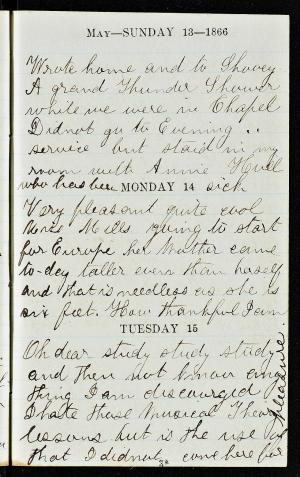 MAY—SUNDAY 13—1866
Wrote home and to Shovey
A grand Thunder Shower
while we were in Chapel
Did not go to Evening ..
service but staid in my
room with Annie Hull
who has been MONDAY 14 sick
Very pleasant quite cool
Mills going to start
for Europe her Mother came
to-day taller even than herself
and that is needless as she is
six feet. How thankful I am
TUESDAY 15
Oh dear study study study
and then not know any
thing I am discouraged
I hate these Musical Theory
lessons but is the use of
that I did not come here for
pleasure.